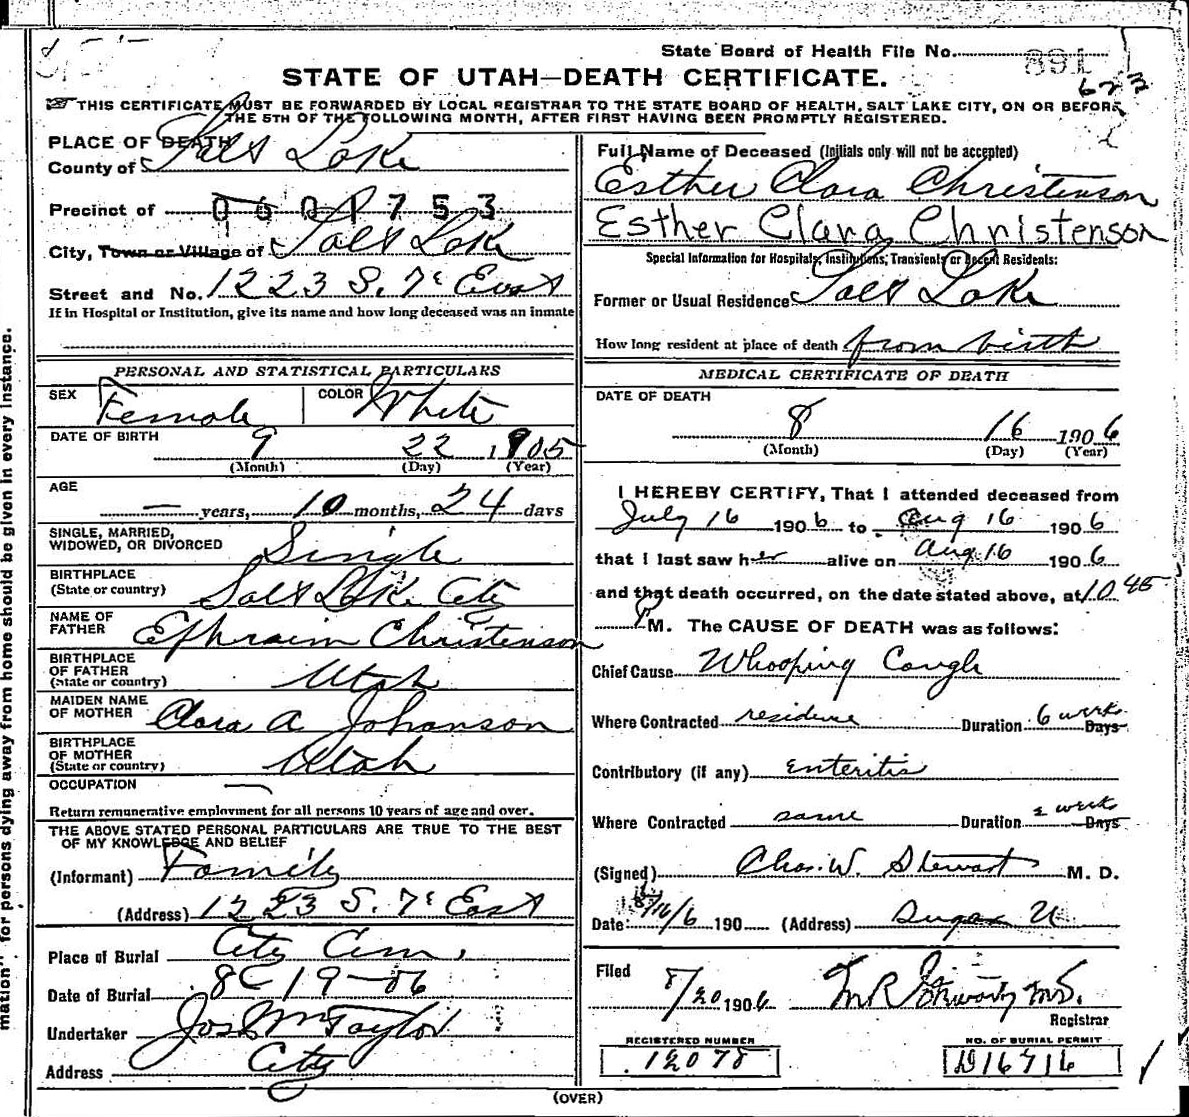 State Board of Health File No. 891
623
STATE OF UTAH—DEATH CERTIFICATE.
THIS CERTIFICATE MUST BE FORWARDED BY LOCAL REGISTRAR TO THE STATE BOARD OF HEALTH, SALT LAKE CITY, ON OR BEFORE
THE 5TH OF THE FOLLOWING MONTH, AFTER FIRST HAVING BEEN PROMPTLY REGISTERED.
PLACE OF DEATH
County of Salt Lake
Precinct of 0601753
City, Town or Village of Salt Lake
Street and No. 1223 S. 7th East
If in Hospital or Institution, give its name and how long deceased was an inmate
PERSONAL AND STATISTICAL PARTICULARS
SEX Female COLOR White
DATE OF BIRTH 9 22 1905
(Month) (Day) (Year)
AGE
— years, 10 months, 24 days
SINGLE, MARRIED,
WIDOWED, OR DIVORCED Single
BIRTHPLACE
(State or country) Salt Lake City
NAME OF
FATHER Ephraim Christenson
BIRTHPLACE
OF FATHER
(State or country) Utah
MAIDEN NAME
OF MOTHER Clara A. Johanson
BIRTHPLACE
OF MOTHER
(State or country) Utah
OCCUPATION —
Return remunerative employment for all persons 10 years of age and over.
THE ABOVE STATED PERSONAL PARTICULARS ARE TRUE TO THE BEST
OF MY KNOWLEDGE AND BELIEF
(Informant) Family
(Address) 1223 S. 7th East
Place of Burial City Cem.
Date of Burial 8-19-06
Undertaker Jos Wm Taylor
Address City
Full Name of Deceased (Initials only will not be accepted)
Esther Clara Christenson
Esther Clara Christenson
Special Information for Hospitals, Institutions, Transients or Recent Residents:
Former or Usual Residence Salt Lake
How long resident at place of death from birth
MEDICAL CERTIFICATE OF DEATH
DATE OF DEATH
8 16 1906
(Month) (Day) (Year)
I HEREBY CERTIFY, That I attended deceased from
July 16 1906 to Aug 16 1906
that I last saw her alive on Aug 16 1906
and that death occurred, on the date stated above, at 10 45
P M. The CAUSE OF DEATH was as follows:
Chief Cause Whooping Cough
Where Contracted residence Duration 6 weeks Days
Contributory (if any) enteritis
Where Contracted same Duration 2 weeks Days
(Signed) Chas. W. Stewart M. D.
Date 8/16/6 190 (Address) Sugar
Filed 8/20 1906
Registrar
REGISTERED NUMBER
12078
NO. OF BURIAL PERMIT
D16716
(OVER)
mation" for persons dying away from home should be given in every instance.